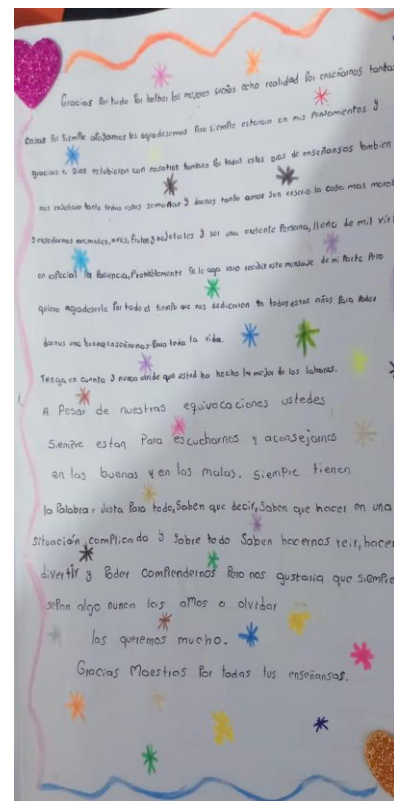 Gracias por todo por bolber los mejores sueños echo realidad por enseñarnos tantas
cosas por siempre apoyarnos les agradesemos pero siempre estaran en mis pensamientos y
gracias a Dios estubieron con nosotros tambien por todos estos dias de enseñansas tambien
nos enseñaron tanto todas estas semanas y darnos tanto amor
y enseñarnos animales, aves, frutas y vejetales y ser una exelente Persona, llena de mil virt
en especial la Paciencia, Probablemente se le aga raro recibir este mensaje de mi Parte Pero
quiero agradeserle Por todo el tiempo que nos dedicaron en todos estos años Para Poder
darnos una buena enseñansa Para toda la vida.
Tenga en cuenta y nunca olvide que usted ha hecho la mejor de las labores.
A Pesar de nuestras equivocaciones ustedes
Siempre estan Para escucharnos y aconsejarnos
en las buenas y en las malas, siempre tienen
la Palabra justa Para todo, Saben que decir, Saben que hacer en una
situación complicada y sobre todo Saben hacernos reir, hacer
divertir y Poder comprendernos Pero nos gustaria que siempre
sepan algo nunca los amos a olvidar
los queremos mucho.
Gracias Maestros Por todas tus enseñansas.